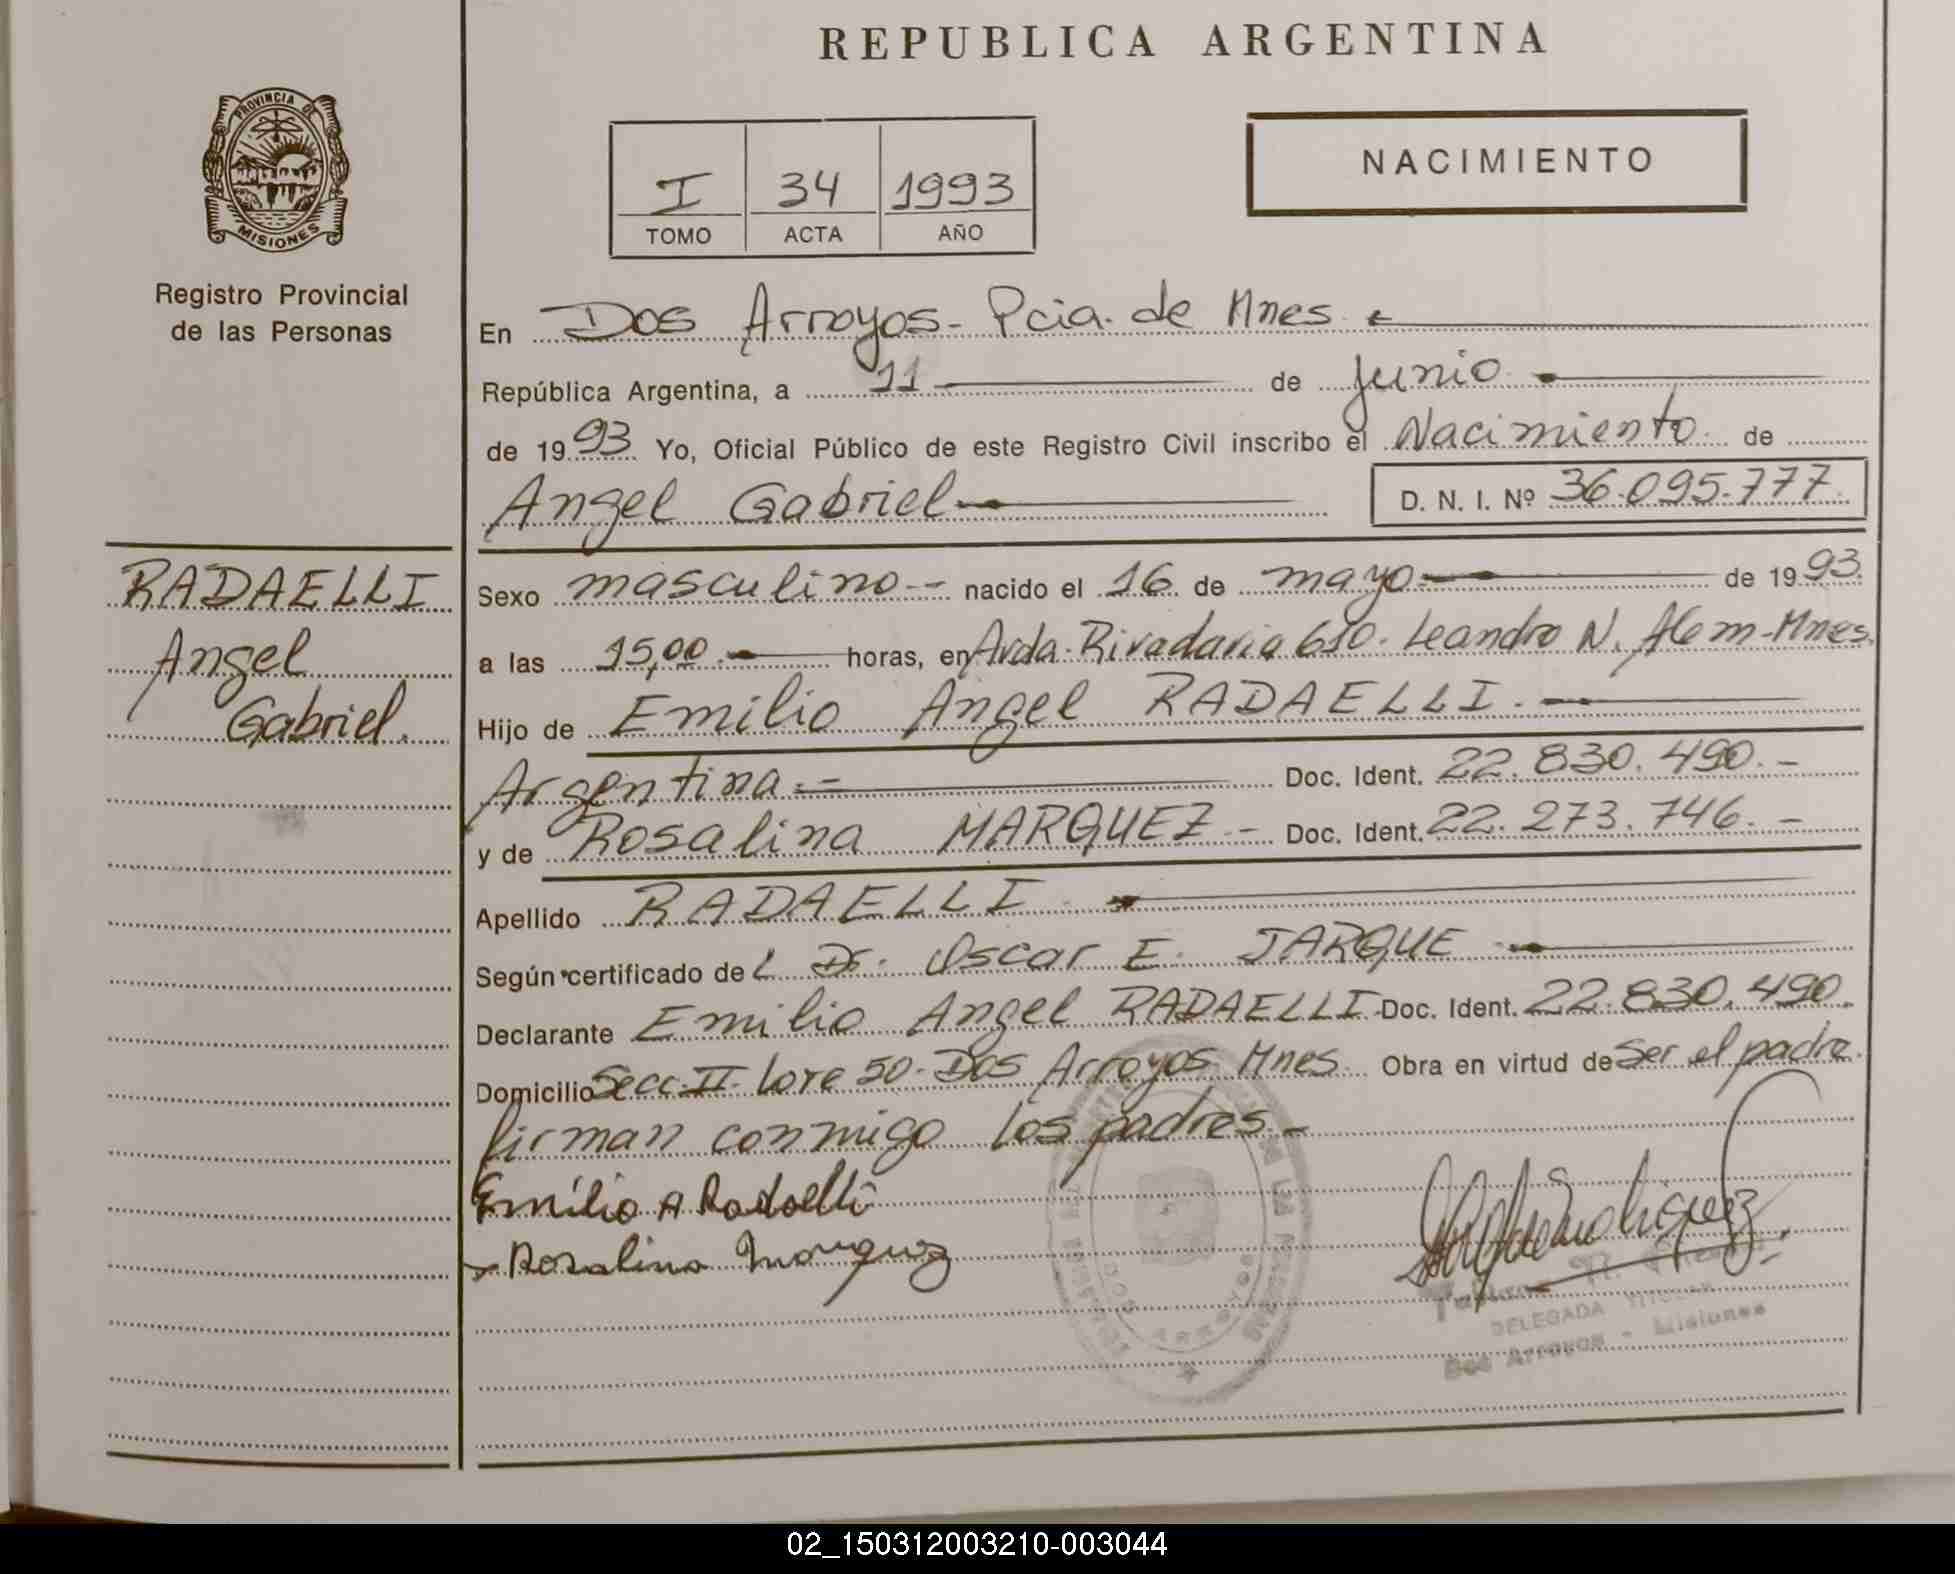 REPUBLICA ARGENTINA
PROVINCIA DE
MISIONES
Registro Provincial
de las Personas
I 34 1993
TOMO ACTA AÑO
NACIMIENTO
En Dos Arroyos - Pcia. de Mnes.
República Argentina, a 11 de junio
de 1993 Yo, Oficial Público de este Registro Civil inscribo el Nacimiento de
Angel Gabriel D. N. I. Nº 36.095.777
RADAELLI
Angel
Gabriel.
Sexo masculino -- nacido el 16 de mayo de 1993.
a las 15,00 horas, en Avda. Rivadavia 610. Leandro N. Alem - Mnes.
Hijo de Emilio Angel RADAELLI.
Argentina. - Doc. Ident. 22.830.490. -
y de Rosalina MARQUEZ - Doc. Ident. 22.273.746. -
Apellido RADAELLI
Según certificado del Dr. Oscar E. JARQUE
Declarante Emilio Angel RADAELLI Doc. Ident. 22.830.490.
Domicilio Secc. II. Lote 50 - Dos Arroyos Mnes. Obra en virtud de Ser el padre.
firman conmigo los padres. -
Emilio A Radaelli
Rosalina Marquez
DOS ARROYOS
DELEGADA TITULAR
Dos Arroyos - Misiones
02_150312003210-003044